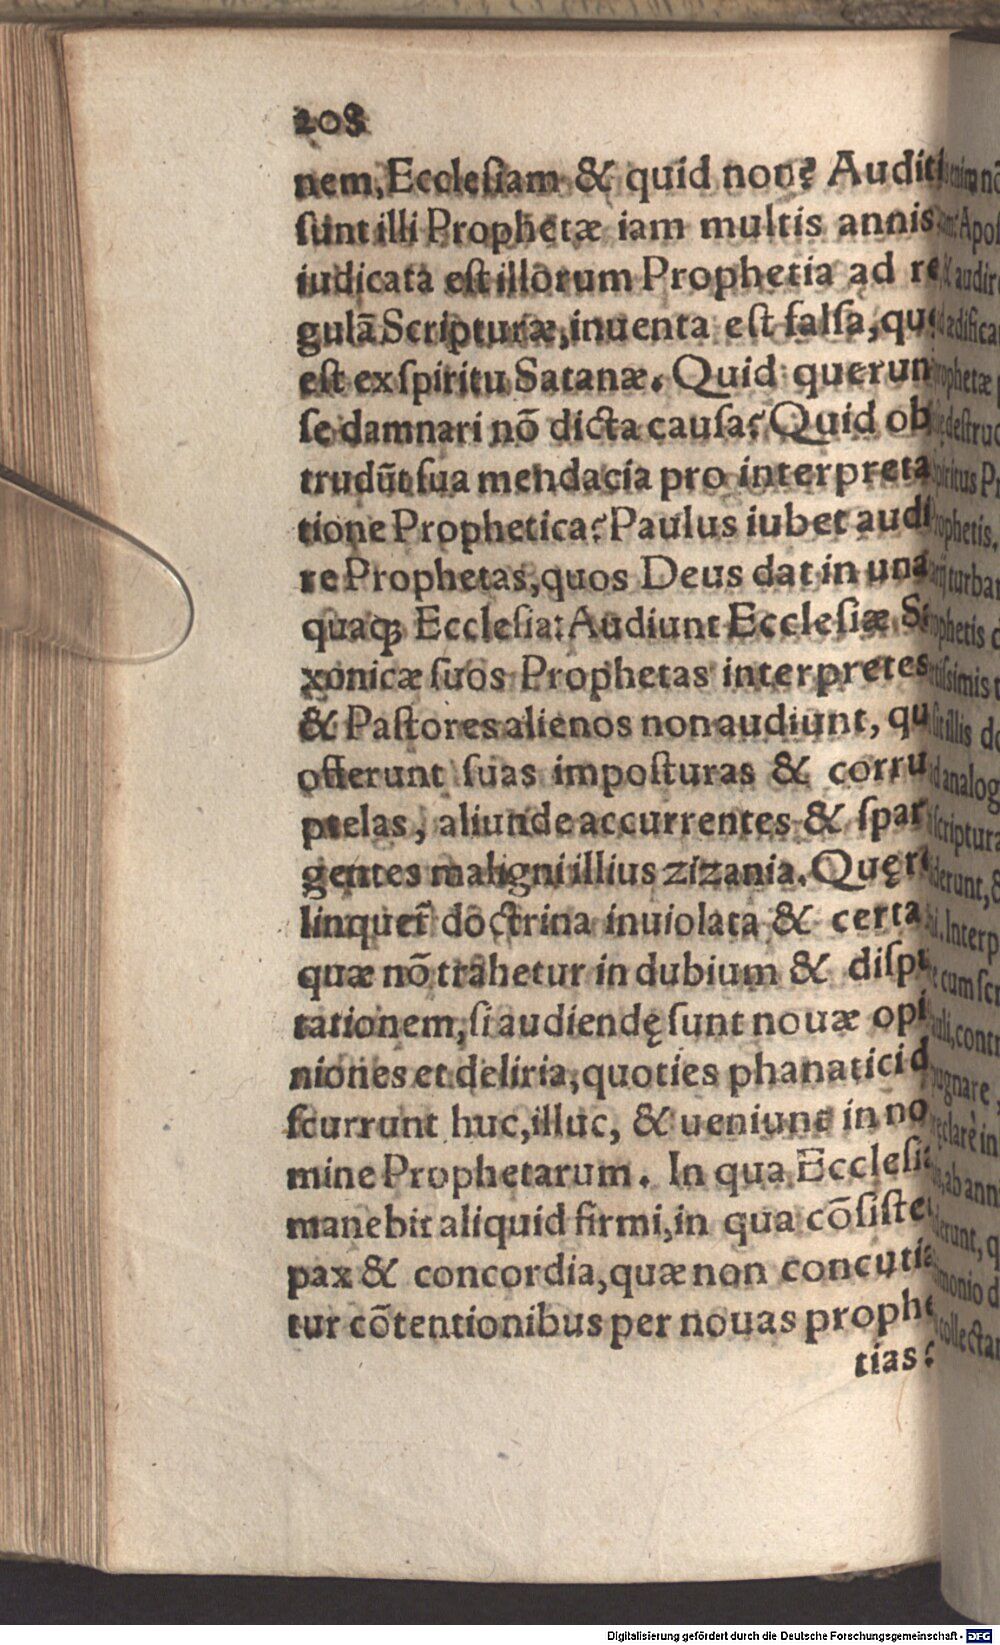 208
nem, Ecclesiam & quid non? Auditi
sunt illi Prophetæ iam multis annis
iudicata est illorum Prophetia ad re
gulā Scripturæ, inuenta est falsa, quę
est ex spiritu Satanæ. Quid querun
se damnari nō dicta causa? Quid ob
trudūt sua mendacia pro interpreta
tione Prophetica? Paulus iubet audi
re Prophetas, quos Deus dat in una
quaqꝫ Ecclesia: Audiunt Ecclesiæ Sa
xonicæ suos Prophetas interpretes
& Pastores alienos non audiunt, qu
offerunt suas imposturas & corru
ptelas, aliunde accurrentes & spar
gentes maligni illius zizania. Quę re
linquet̃ doctrina inuiolata & certa
quæ nō trahetur in dubium & dispu
tationem, si audiendę sunt nouæ opi
niones et deliria, quoties phanatici d
scurrunt huc, illuc, & ueniunt in no
mine Prophetarum. In qua Ecclesia
manebit aliquid firmi, in qua cōsiste
pax & concordia, quæ non concutia
tur cōtentionibus per nouas prophe
tias?
Digitalisierung gefördert durch die Deutsche Forschungsgemeinschaft - DFG